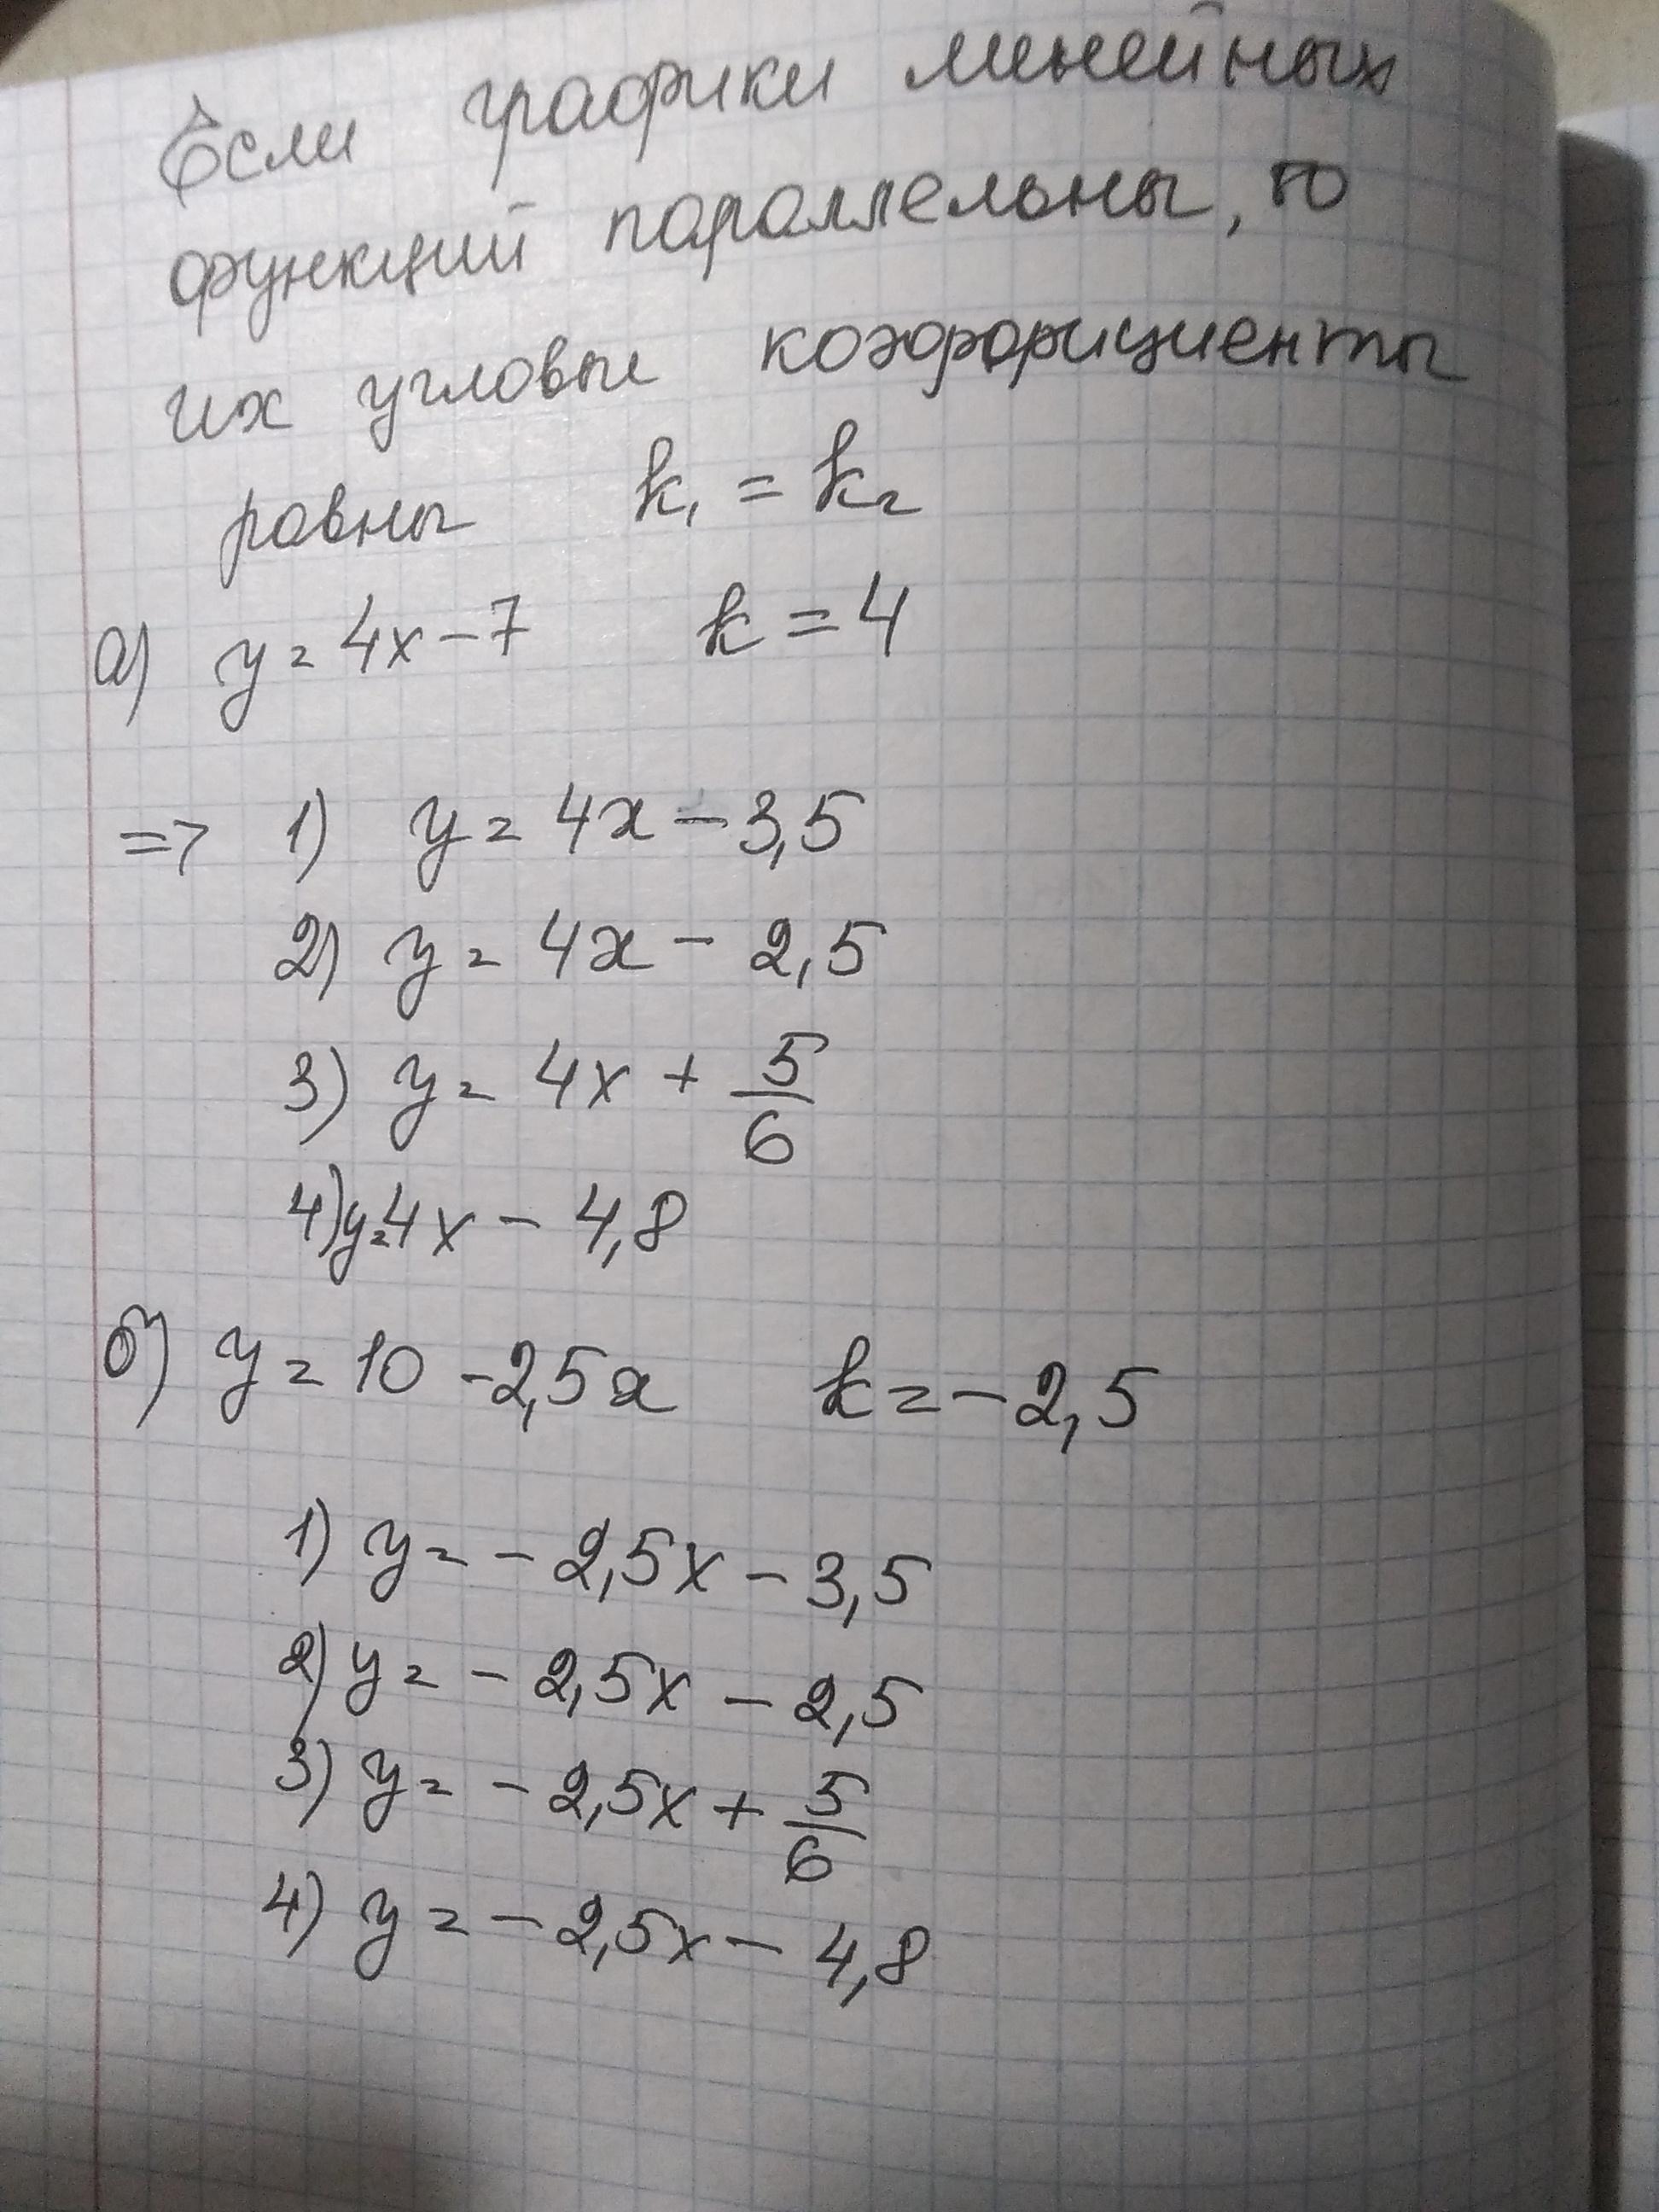 Если графики линейных
функций параллельны, то
их угловые коэффициенты
равны k₁ = k₂
а) y = 4x - 7 k = 4
=> 1) y = 4x - 3,5
2) y = 4x - 2,5
3) y = 4x + 5/6
4) y = 4x - 4,8
б) y = 10 - 2,5x k = - 2,5
1) y = - 2,5x - 3,5
2) y = - 2,5x - 2,5
3) y = - 2,5x + 5/6
4) y = - 2,5x - 4,8